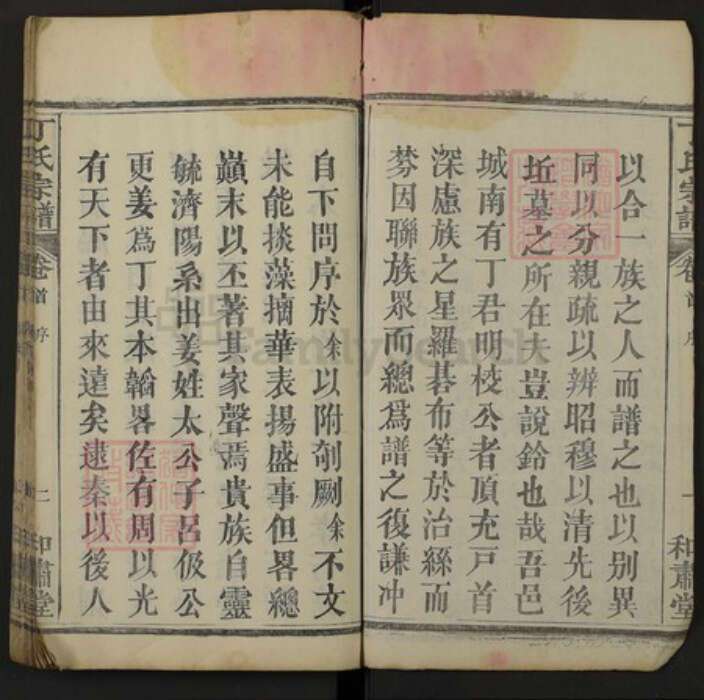 以合一族之人而譜之也以別異
同以分親疏以辨昭穆以清先後
坵墓之所在夫豈說鈴也哉吾邑
城南有丁君明校公者頂充戸首
深慮族之星羅碁布等於治絲而
棼因聯族眾而總爲譜之復謙冲
自下問序於余以附剞劂余不文
未能掞藻摛華表揚盛事但畧總
巔末以丕著其家聲焉貴族自靈
毓濟陽系出姜姓太公子呂伋公
更姜爲丁其本韜畧佐有周以光
有天下者由來遠矣逮秦以後人
丁氏宗譜 卷首 序 一 和肅堂
丁氏宗譜 卷首 序 二 和肅堂
FamilySearch